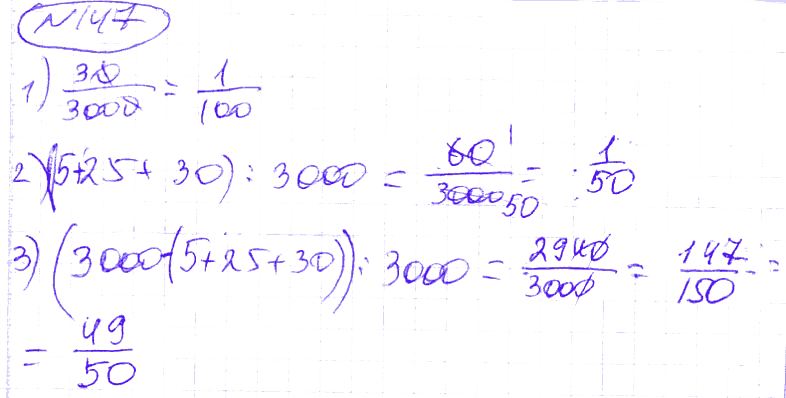 N147
1) 30/3000 = 1/100
2) (5+25+30) : 3000 = 60/3000 = 1/50
3) (3000-(5+25+30)) : 3000 = 2940/3000 = 147/150 =
= 49/50